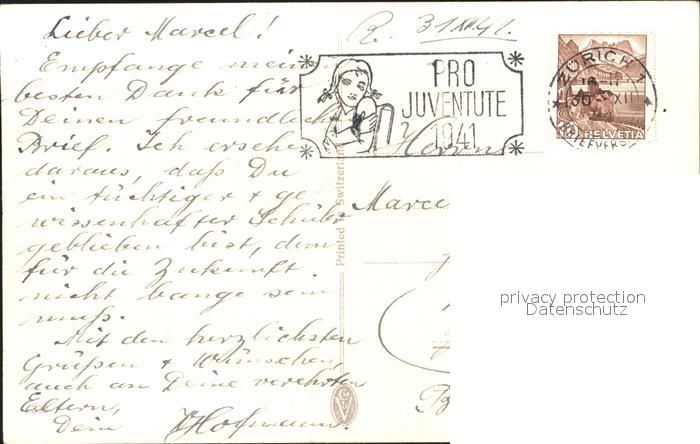 Lieber Marcel!
Empfange meinen
besten Dank für
Deinen freundlichen
Brief. Ich ersehe
daraus, daß Du
ein tüchtiger + ge-
wissenhafter Schüler
geblieben bist, dem
für die Zukunft
nicht bange sein
muß.
Mit den herzlichsten
Grüßen + Wünschen,
auch an Deine verehrten
Eltern,
Dein Hofmann.
R. 31.XII.41.
PRO
JUVENTUTE
1941
ZÜRICH 1
30. XII
BRIEFVERS
HELVETIA
Herrn
Marce
Printed in Switzerland
privacy protection
Datenschutz